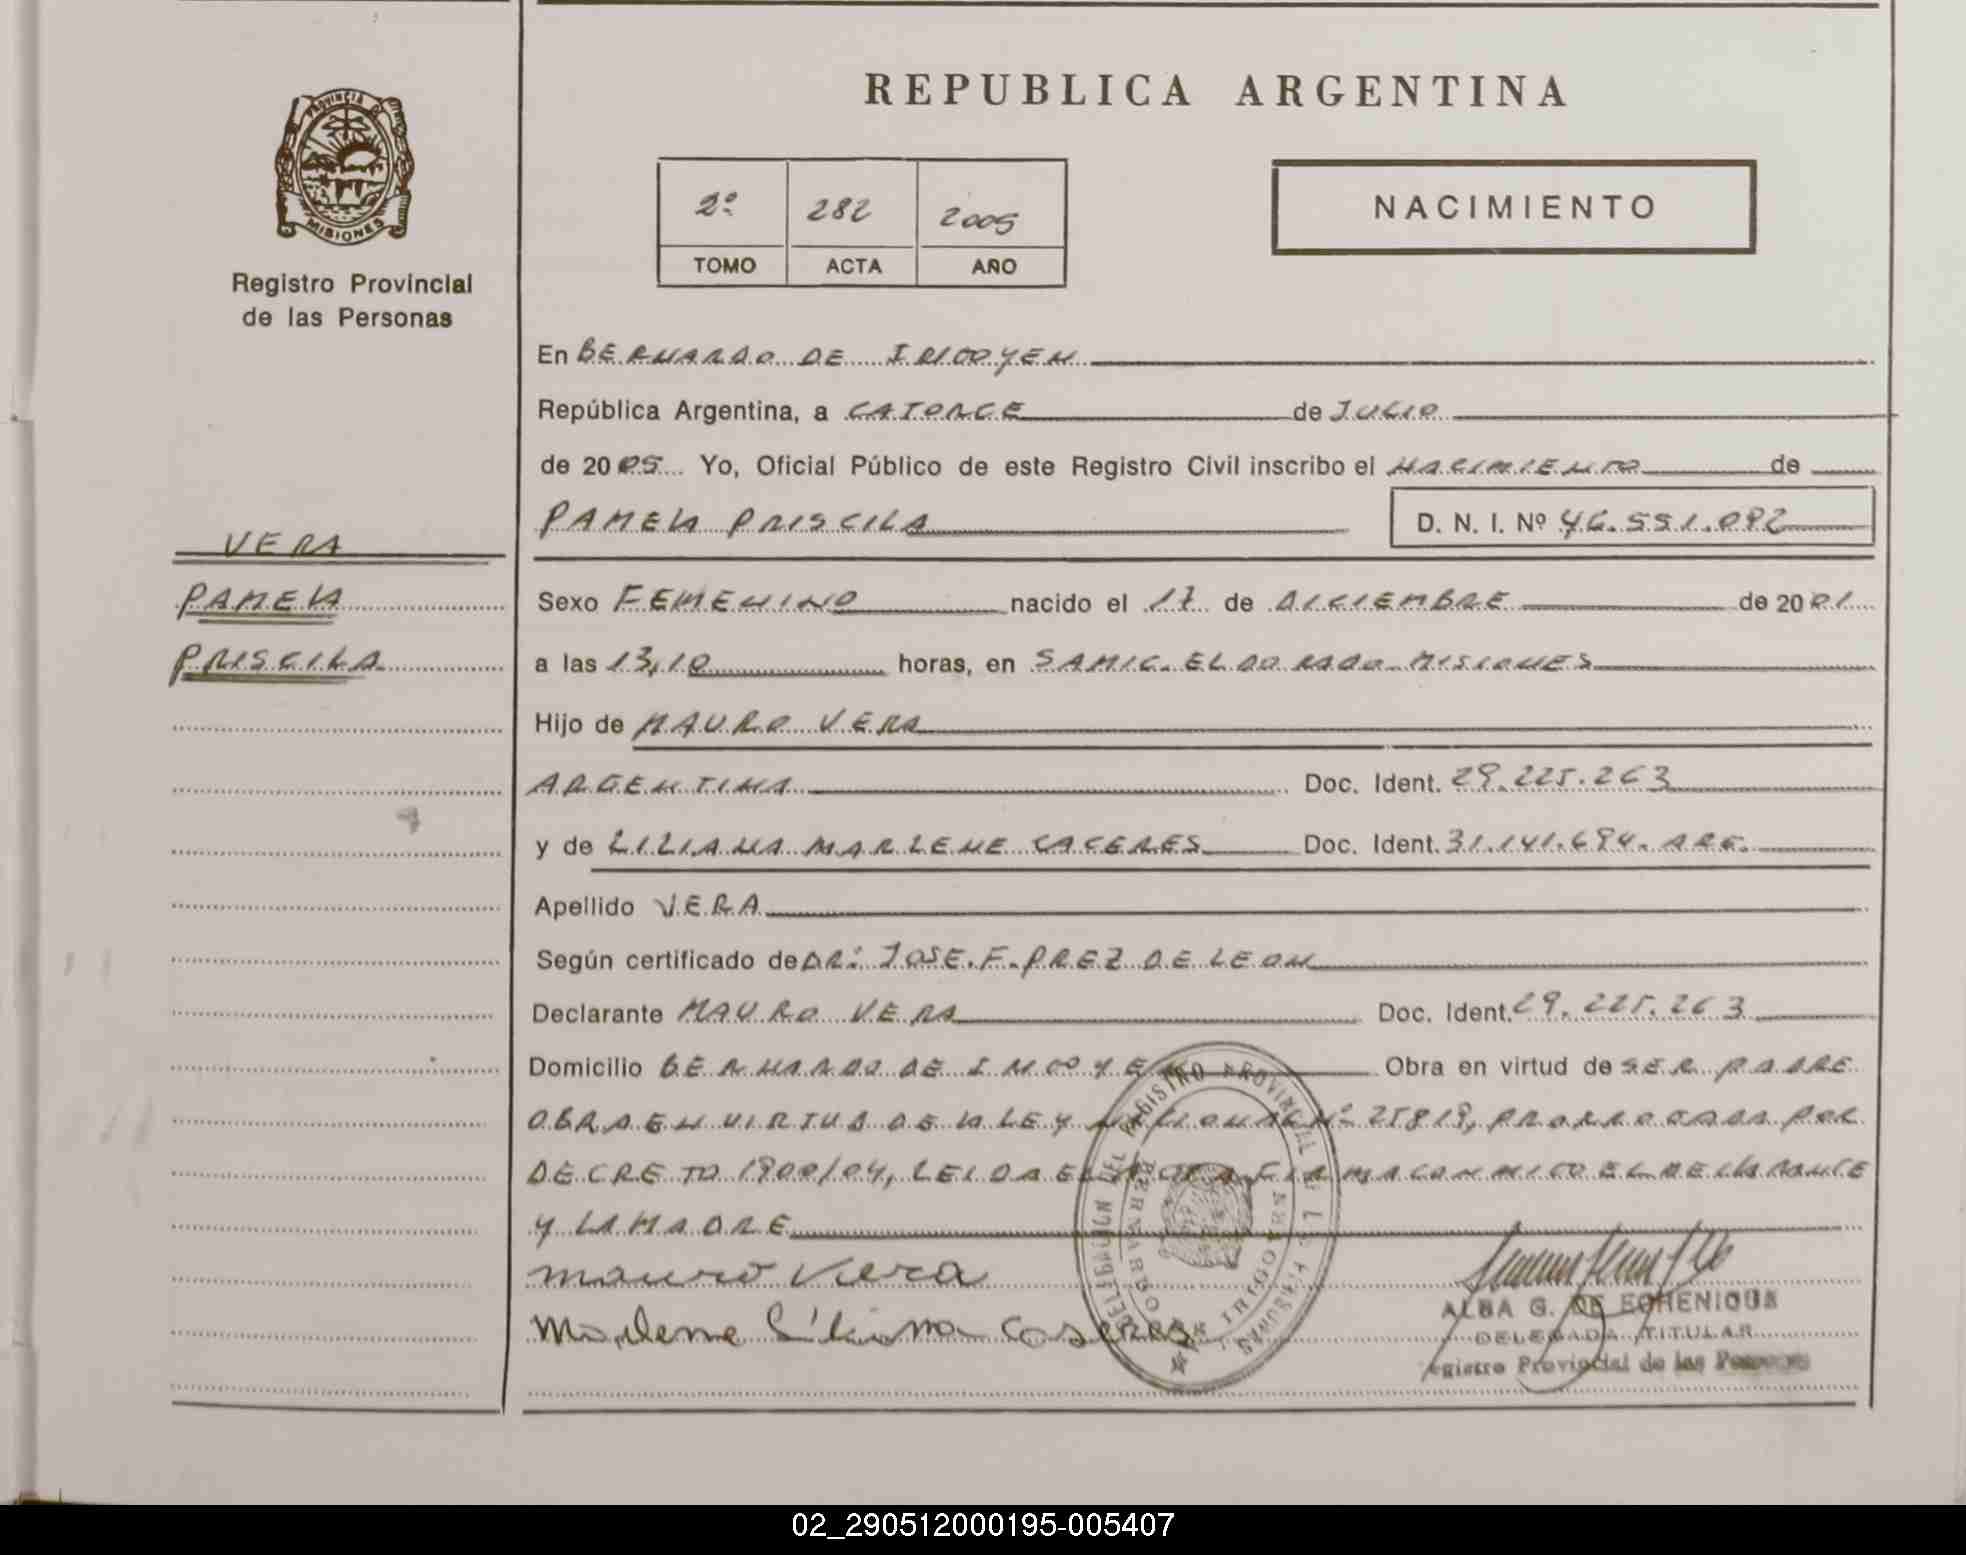 PROVINCIA DE
MISIONES
Registro Provincial
de las Personas
VERA
PAMELA
PRISCILA
REPUBLICA ARGENTINA
2º 282 2005
TOMO ACTA AÑO
NACIMIENTO
En BERNARDO DE IRIGOYEN
República Argentina, a CATORCE de JULIO
de 2005 Yo, Oficial Público de este Registro Civil inscribo el NACIMIENTO de
PAMELA PRISCILA D. N. I. Nº 46.551.092
Sexo FEMENINO nacido el 17 de DICIEMBRE de 2001
a las 13,10 horas, en SAMIC. ELDORADO MISIONES
Hijo de MAURO VERA
ARGENTINA Doc. Ident. 29.225.263
y de LILIANA MARLENE CACERES Doc. Ident. 31.141.694. ARG.
Apellido VERA
Según certificado de DR: JOSE. F. PREZ DE LEON
Declarante MAURO VERA Doc. Ident. 29.225.263
Domicilio BERNARDO DE IRIGOYEN Obra en virtud de SER PADRE
OBRA EN VIRTUD DE LA LEY NACIONAL Nº 25819, PRORROGADA POR
DECRETO 1900/04, LEIDA EL ACTA FIRMA CONMIGO EL DECLARANTE
Y LA MADRE
mauro Vera
Marlene Liliana Caseres
DELEGACION DEL REGISTRO PROVINCIAL DE LAS PERSONAS
BERNARDO DE IRIGOYEN
ALBA G. DE ECHENIQUE
DELEGADA TITULAR
Registro Provincial de las Personas
02_290512000195-005407